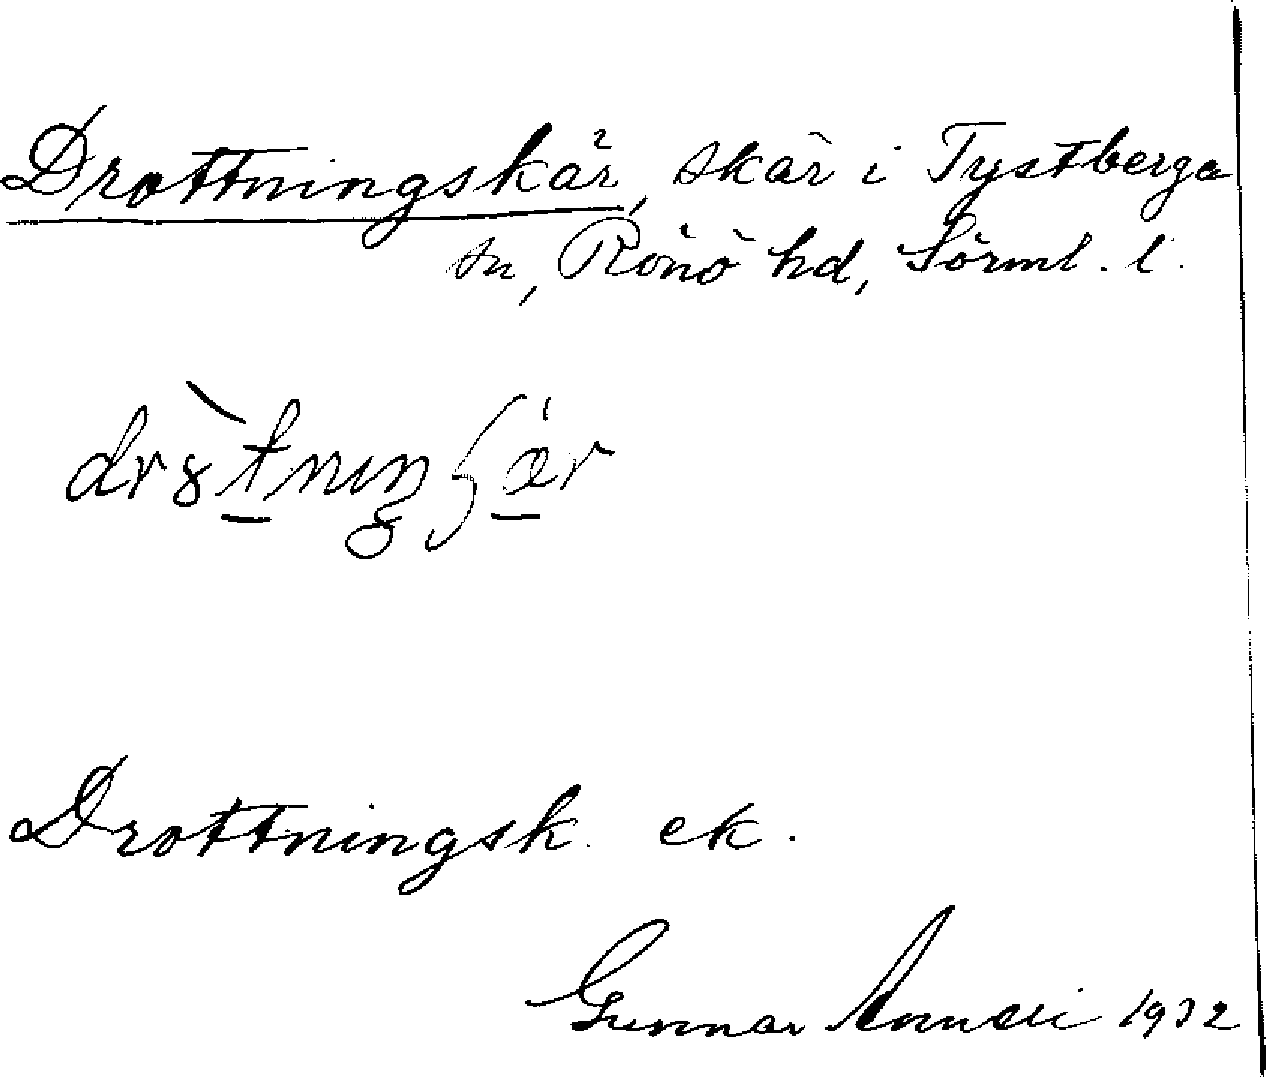 Drottningskär, skär i Tystberga
sn, Rönö hd, Sörml. l.
Drottningsk. ek.
Gunnar 1932